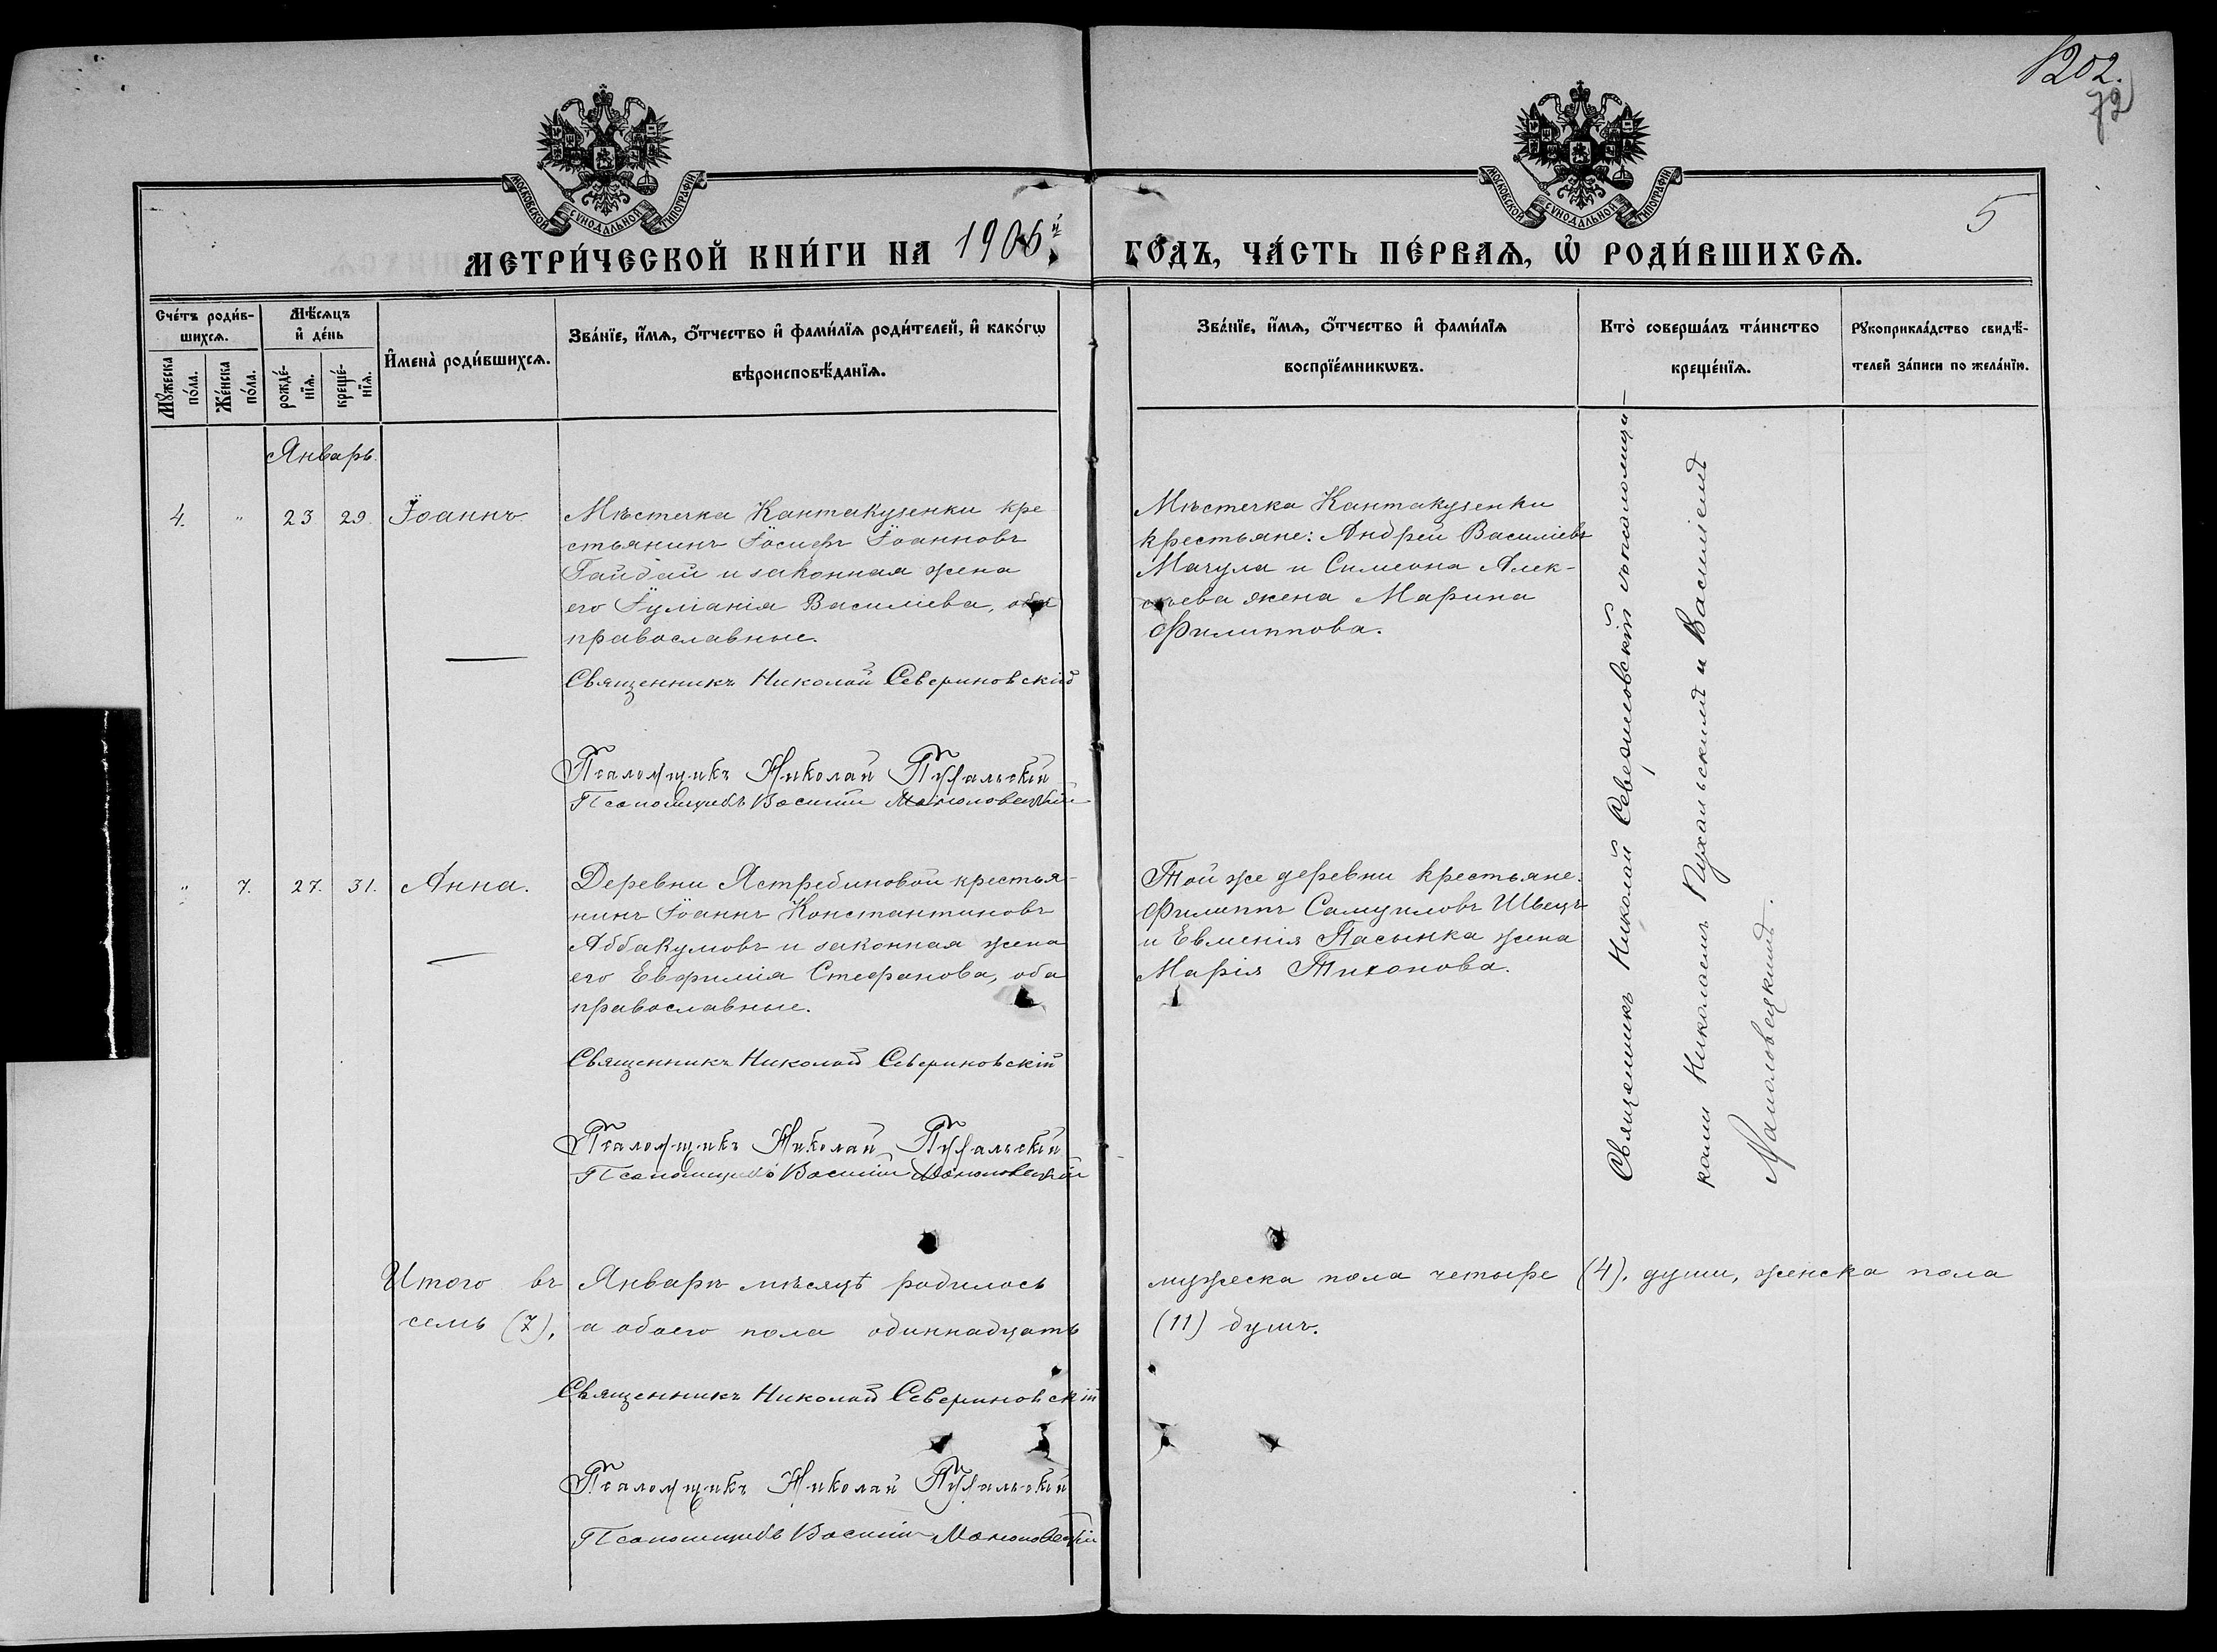 1202.
72
5
МОСКОВСКОЙ СѴНОДАЛЬНОЙ ТИПОГРАФІИ
МОСКОВСКОЙ СѴНОДАЛЬНОЙ ТИПОГРАФІИ
МЕТРИ́ЧЕСКОЙ КНИ́ГИ НА 1906й
ГО́ДЪ, ЧА́СТЬ ПЕ́РВАѦ, Ѡ҆ РОДИ́ВШИХСѦ.
Сче́тъ роди́в-
шихсѧ.
Мꙋ́жеска по́ла.
Же́нска по́ла.
Мѣ́сѧцъ
и҆ де́нь
рожде́-
нїѧ.
креще́-
нїѧ.
И҆мена̀ роди́вшихсѧ.
Зва́нїе, и҆́мѧ, ѻ҆́тчество и҆ фами́лїѧ роди́телей, и҆ како́гѡ
вѣроисповѣ́данїѧ.
Зва́нїе, и҆́мѧ, ѻ҆́тчество и҆ фами́лїѧ
воспрїе́мникѡвъ.
Кто̀ соверша́лъ та́инство
креще́нїѧ.
Рꙋкоприкла́дство свидѣ́-
телей за́писи по жела́нїю.
Январь.
4. " 23 29. Іоаннъ.
Мѣстечка Кантакузенки кре
стьянинъ Іосифъ Іоанновъ
Гайдай и законная жена
его Іуліанія Василіева, оба
православные.
Священникъ Николай Севериновскій
Псаломщикъ Николай Пухальскій
Псаломщикъ Василій Маньковецкій
Мѣстечка Кантакузенки
крестьяне: Андрей Василіевъ
Мачула и Симеона Алек-
сѣева жена Марина
Филиппова.
" 7. 27. 31. Анна.
Деревни Ястребиновой крестья-
нинъ Іоаннъ Константиновъ
Аббакумовъ и законная жена
его Евфимія Стефанова, оба
православные.
Священникъ Николай Севериновскій
Псаломщикъ Николай Пухальскій
Псаломщикъ Василій
Той же деревни крестьяне:
Филиппъ Самуиловъ Швецъ
и Евменія Пасынка жена
Марія Тихонова.
Священникъ Николай Севериновскій съ псаломщи-
ками Николаемъ Пухальскимъ и Василіемъ
Итого въ Январѣ мѣсяцѣ родилось мужеска пола четыре (4). души, женска пола
семь (7), а обоего пола одиннадцать (11) душъ.
Священникъ Николай Севериновскій
Псаломщикъ Николай Пухальскій
Псаломщикъ Василій